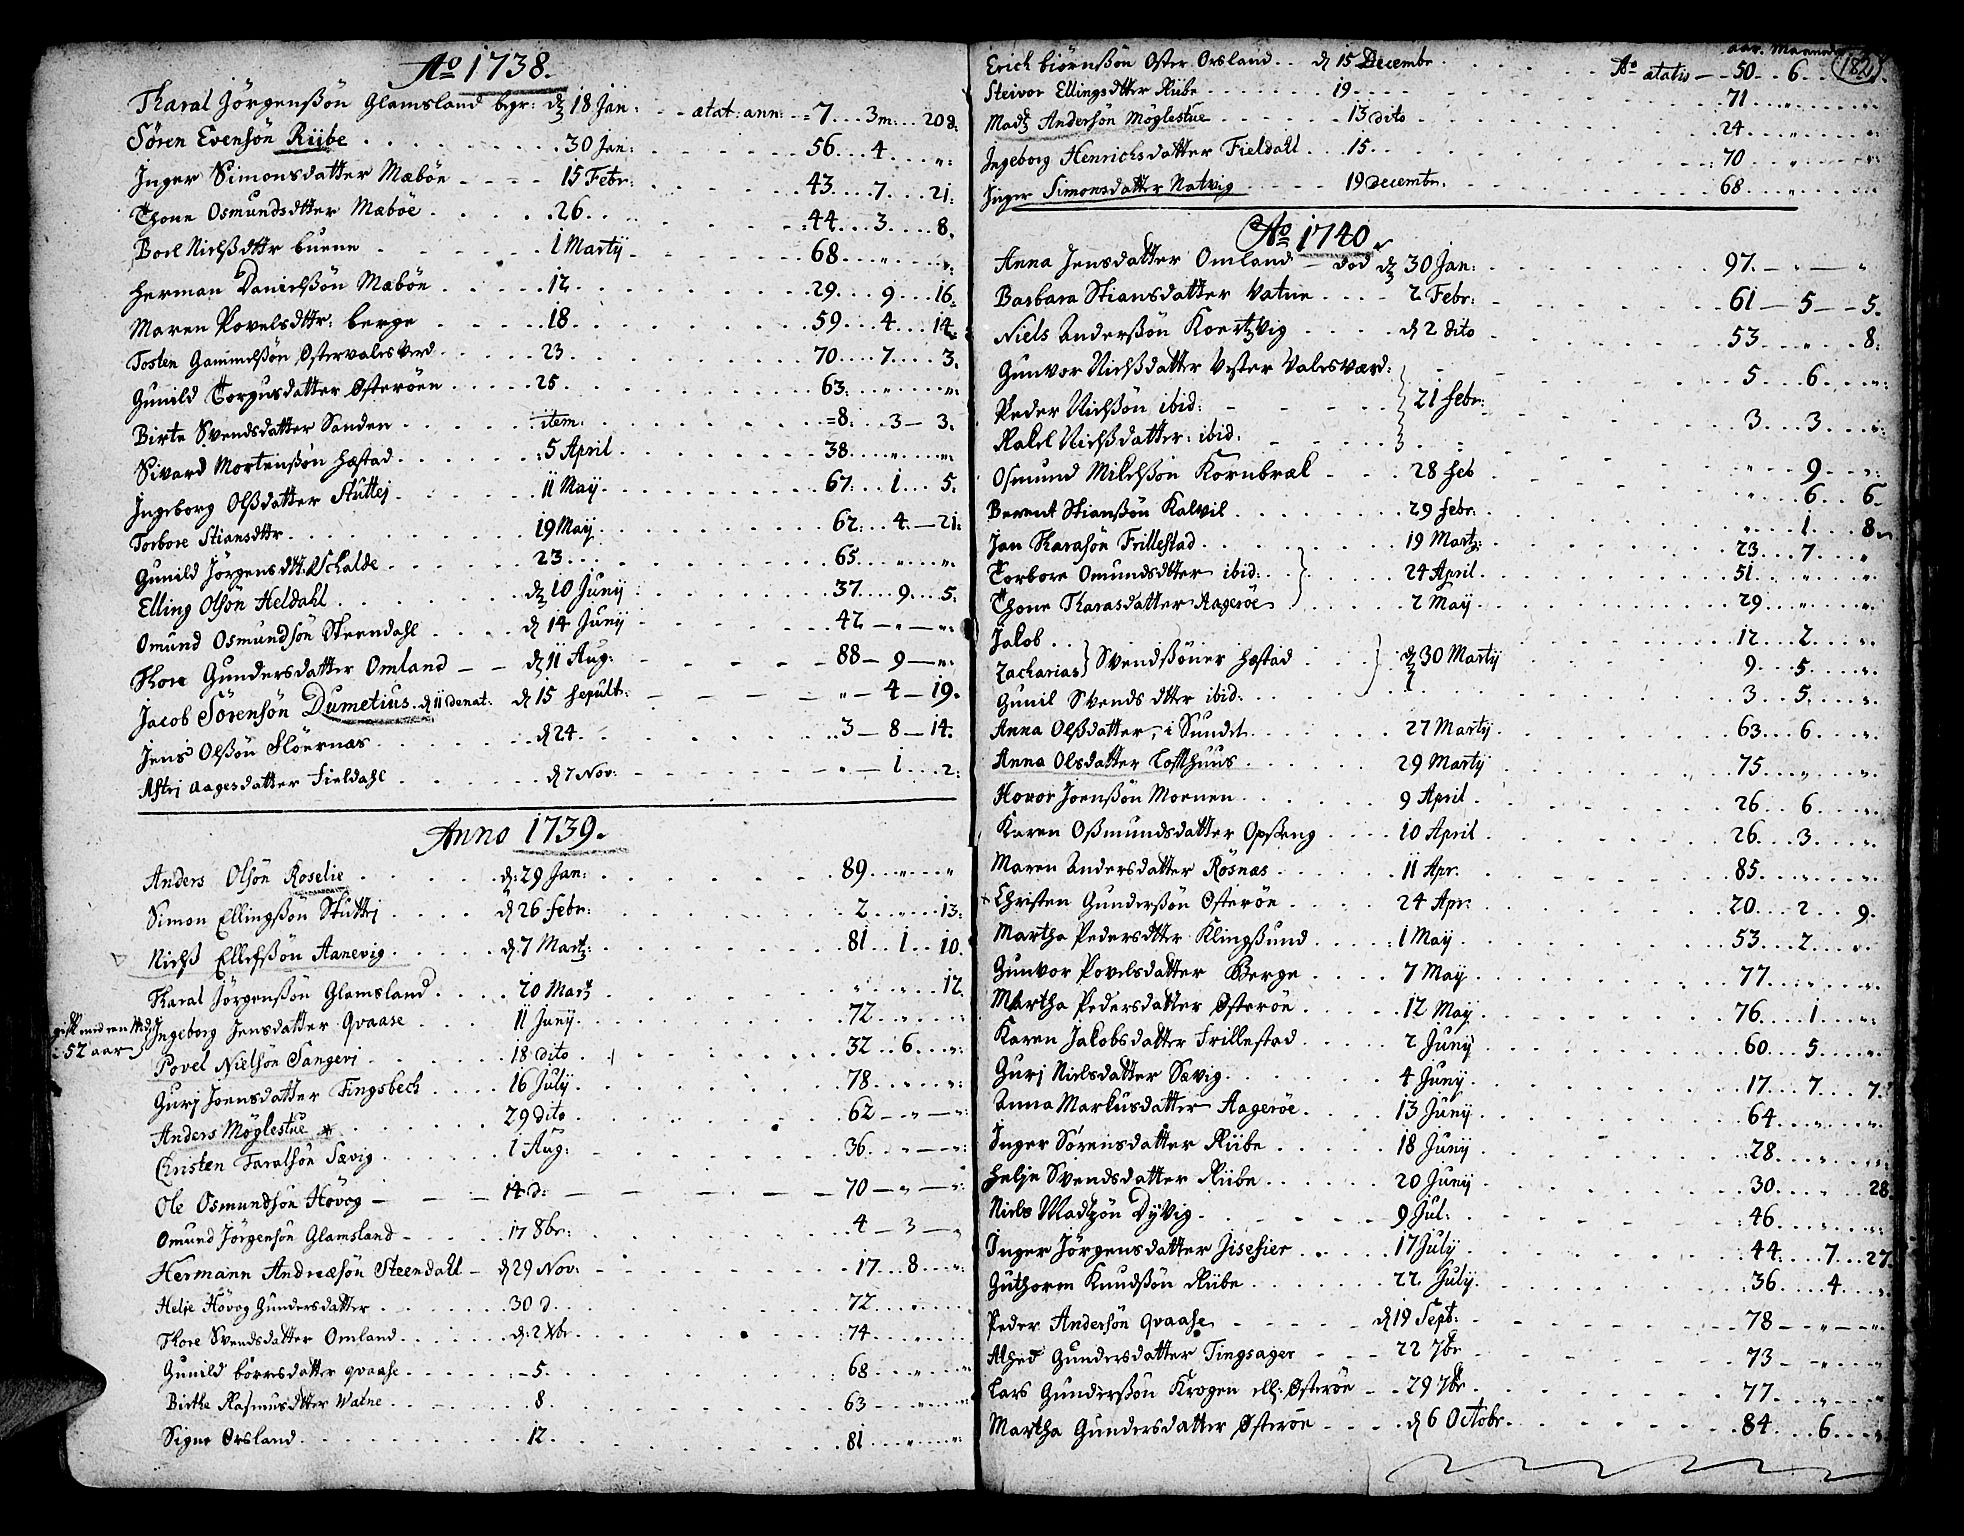 Ao 1738.
Tharal Jörgensßön Glamsland begr: d 18 Jan: ætat: ann: 7 . . . 3 m . . . 20 d.
Sören Evensön Riibe . . . 30 Jan: . . . 56 . . . 4 . . . „
Inger Simonsdatter Mæbön . . . 15 Febr: . . . 43 . . . 7 . . . 21.
Thone Osmundsdtter Mæböe . . . 26 . . . 44 . . . 3 . . . 8.
Boel Nielßdttr buene . . . 1 Martij . . . 68 . . . „ . . . „
Herman Danielßön Mæbön . . . 12 . . . 29 . . . 9 . . . 16.
Maren Povelsdttr: berge . . . 18 . . . 59 . . . 4 . . . 14.
Tosten Gammelßön Ostervalesverd . . . 23 . . . 70 . . . 7 . . . 3.
Gunild Torgusdatter Østeröen . . . 25 . . . 63 . . . „ . . . „
Birte Svendsdatter Sanden . . . item . . . 8 . . . 3 – 3.
Sivard Mortenßön Hæstad . . . 5 April . . . 38 . . . „ . . . „
Ingeborg Olßdatter Stuttej . . . 11 Maij . . . 67 . . . 1 . . . 5.
Torbore Stiansdttr . . . 19 Maij . . . 62 . . . 4 – 21.
Gunild Jörgensdtt: Uchalde . . . 23 . . . 65 . . . „ . . . „
Elling Olsön Heldahl . . . d 10 Junij . . . 37 . . . 9 . . . 5.
Omund Osmundsön Steendahl . . . d 14 Junij . . . 42 – „ – „
Thore Gundersdatter Omland – – d 11 Aug: . . . 88 – 9 – „
Jacob Sörensön Dumetius. d 11 denat: d 15 sepult: . . . „ – 4 – 19.
Jens Olßön Flöernæs . . . d 24 . . . 3 – 8 – 14.
Astrj Aagesdatter Fieldahl . . . d 7 Nov: . . . „ – 1 . . . 2.
Anno 1739.
Anders Olsön Roselie . . . d: 29 Jan: . . . 89 . . . „ . . . „
Simon Ellingßön Stuttej . . . d 26 febr: . . . 2 . . . „ . . . 13.
Nielß Ellefßön Aanevig . . . d 7 Martz: . . . 81 . . 1 . . 10.
Tharal Jörgensßön Glamsland . . . 20 Martz . . . „ . . . „ . . . 12.
Ingeborg Jensdatter Qvaase . . . 11 Junij . . . 72 . . . „ . . . „
52 aar
Povel Nielsön Sangerj . . . 18 dito . . . 32 . . 6 . . . „
Gurj Joensdatter Tingsbech . . . 16 Julij . . . 78 . . . „ . . . „
Anders Möglestue * . . . 29 dito . . . 62 – „ – „
Christen Taralsön Sævig . . . 1 Aug: . . . 36 . . . „ – „
Ole Osmundsön Hövog – – 14 d: – – 70 – „ – „
Omund Jörgensön Glamsland . . . 17 8br: . . . 4 – 3 – „
Hermann Andreæsön Steendahl – d 29 Nov: . . . 17 . . . 8 . . . „
Helje Hövog Gundersdatter . . . 30 d. . . . 72 . . . „ . . . „
Thore Svendsdatter Omland . . . d: 2 Xbr . . . 74 . . . „ . . . „
Gunild börresdatter qvaase . . . 5 . . . 68 . . . „ . . . „
Birthe Rasmusdtter Watne . . . 8 . . . 63 . . . „ . . . „
Signe Orsland . . . 12 . . . 81 . . . „ . . . „
aar. Maaneder
182
Erich biörnßön Oster Orsland . . d 15 Decembr . . . Ao ætatis – 50 . . 6 . . .
Steivor Ellingsdtter Riibe . . . 19 . . . 71 . . . „ . . .
Madtz Andersön Möglestue . . . 13 dito . . . 24 . . . „ . . . „
Ingeborg Henrichsdatter Fieldahl . . . 15 . . . 70 . . . „ . . . „
Inger Simonsdatter Natvig . . . 19 Decembr: . . . 68 . . . „ . . . „
Ao 1740.
Anna Jensdatter Omland – död d 30 Jan: . . . 97. – „ – „
Barbara Stiansdatter Vatne . . . 2 Febr: . . . 61 – 5 – 5.
Niels Anderßön Koertzvig . . . d 2 dito . . . 53 . . . „ . . . 8.
Gunvor Nielßdatter Vester Valesværd: . . . 5 . . . 6 . . . „
Peder Nielßön ibid: . . . 21 febr: . . . 3 . . . 3 . . . „
Rakel Nielßdatter: ibid. . . . „ . . . 9 . . . „
Osmund Mikelßön Kornbræk . . . 28 feb . . . „ . . . 6 . . 6.
Berent Stianßön Kalvil . . . 29 febr: . . . „ . . . 1 . . . 8.
Jan Tharasön Frillestad . . . 19 Martz: . . . 23 . . . 7 . . . „
Torbore Omundsdtter ibid: . . . 24 April . . . 51 . . . „ . . . „
Thone Tharasdatter Aageröe . . . 2 Maij . . . 29 . . . „ . . . „
Jakob . . . 12 . . . 2 . . . „
Zacharias } Svendßöner Hæstad . . . d 30 Martij . . . 9 . . . 5 . . . „
Gunil Svends dtter ibid: . . . 3 . . . 5 . . . „
Anna Olßdatter, i Sundet . . . 27 Martij . . . 63 . . . 6 . . . „
Anna Olsdatter Loffthuus . . . 29 Martij . . . 75 . . . „ . . . „
Hovor Joenßön Moenen . . . 9 April . . . 26 . . 6 . . . „
Karen Oßmundsdatter Opsteng . . . 10 April . . . 26 . . 3 . . . „
Maren Andersdatter Rösnæs . . . 11 Apr. . . . 85 . . . „ . . . „
+ Christen Gunderßön Østeröe . . . 24 Apr: . . . 20 . . . 2 . . 9.
Martha Pedersdtter Klingßund . . . 1 Maij . . . 53 . . . 2 . . . „
Gunvor Povelsdatter Berge . . . 7 Maij . . . 77 . . . „ . . . „
Martha Pedersdatter Østeröe . . . 12 Maij . . . 76 . . . 1 . . . „
Karen Jakobsdatter Frillestad . . . 2 Junij . . . 60 . . . 5 . . . „
Gurj Nielsdatter Sævig . . . 4 Junij . . . 17 . . . 7 . . . 7.
Anna Markusdatter Aageröe . . . 13 Junij . . . 64 . . . „ . . . „
Inger Sörensdatter Riibe . . . 18 Junij . . . 28 . . . „ . . . „
Helje Svendsdatter Riibe . . . 20 Junij . . . 30 . . . „ . . . 28.
Niels Madtzön Dijvig . . . 9 Jul: . . . 46 . . . „ . . . „
Inger Jörgensdatter Jisefier . . . 17 Julij . . . 44 . . . 7 . . . 27.
Guthorm Knudßön Riibe . . . 22 Julij . . . 36 . . . 4 . . . „
Peder Andersön qvaase . . . d 19 Sept: . . . 78 – „ – „
Alhed Gundersdatter Tingsager . . . 22 7br . . . 73 – „ . . . „
Lars Gunderßön Krogen ell: Østeröe . . . 29 7br . . . 77 . . . „ . . . „
Martha Gundersdatter Østeröe . . . d 6 Octobr . . . 84 . . . 6 . . . „